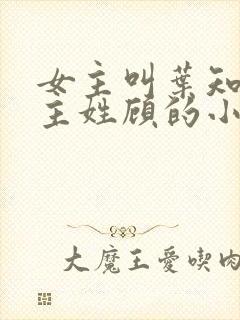 女主叫葉知
主姓顧的小
大魔王愛喫肉